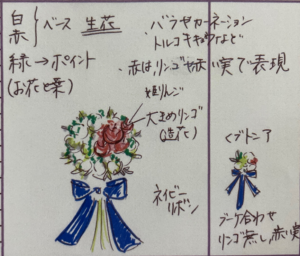 白
赤
ベース 生花
緑→ポイント
(お花と葉)
・バラやカーネーション
トルコキキョウなど
・赤はリンゴや赤い実で表現
姫りんご
大きめリンゴ
(造花)
ネイビー
リボン
<ブトニア
ブーケ合わせ
リンゴ無し、赤い実